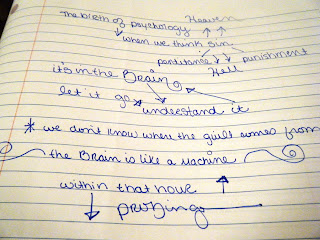 Heaven
The birth of psychology
when we think
punishment
Hell
it's in the Brain
let it go understand it
* we don't know where the guilt comes from
the Brain is like a machine
within that hour